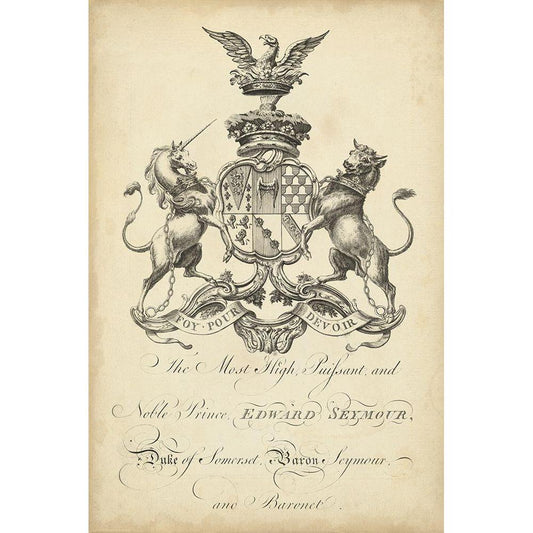 FOY · POUR DEVOIR
The Most High, Puissant, and
Noble Prince, EDWARD SEYMOUR,
Duke of Somerset, Baron Seymour,
and Baronet.